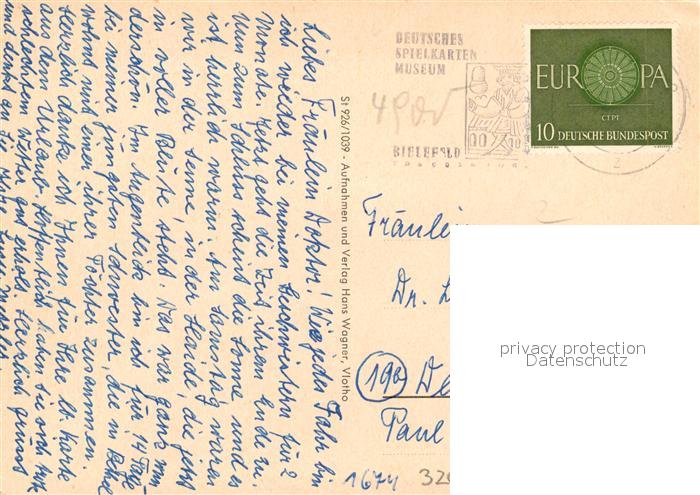 Liebes Fräulein Doktor! Wie jedes Jahr bin
ich wieder bei meinen Geschwistern für 2
Monate. Jetzt geht die Zeit ihrem Ende zu.
Nun zum Schluss scheint die Sonne und es
ist herrlich warm. Am Samstag waren
wir in der Senne, in der Heide, die jetzt
in voller Blüte steht. Das war ganz wun
derschön. Im Augenblick bin ich für 14 Tage
bei meiner jüngsten Schwester, die in
wohnt mit einer ihrer Töchter zusammen
Herzlich danke ich Ihnen für Ihre lb. Karte
aus dem Urlaub. Hoffentlich haben Sie sich trotz
schlechtem Wetter gut erholt. Herzlich grüsst
und denkt an Sie Ihre
St 926/1039 - Aufnahmen und Verlag Hans Wagner, Vlotho
DEUTSCHES
SPIELKARTEN
MUSEUM
BIELEFELD
EUROPA
CEPT
10 DEUTSCHE BUNDESPOST
2
Fräulein
Dr. L
Paul
1674
privacy protection
Datenschutz